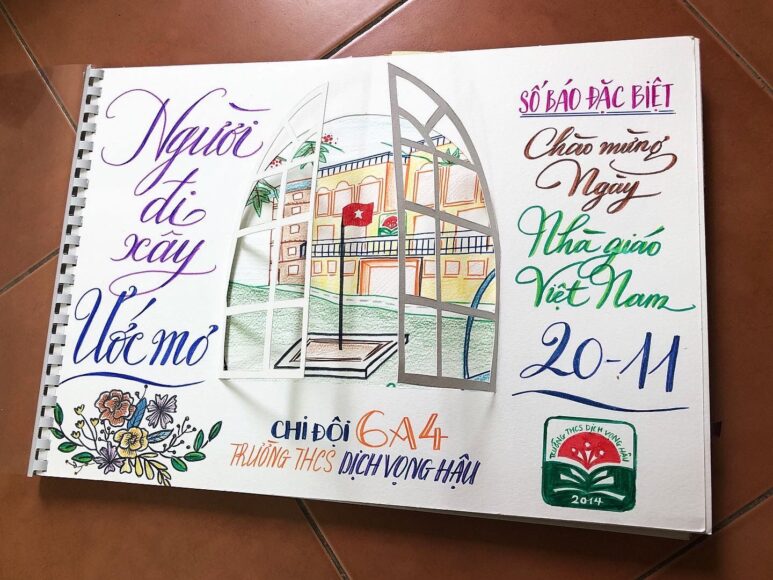 Người
đi
xây
Ước mơ
SỐ BÁO ĐẶC BIỆT
Chào mừng
Ngày
Nhà giáo
Việt Nam
20-11
CHI ĐỘI 6A4
TRƯỜNG THCS DỊCH VỌNG HẬU
TRƯỜNG THCS DỊCH VỌNG HẬU
2014